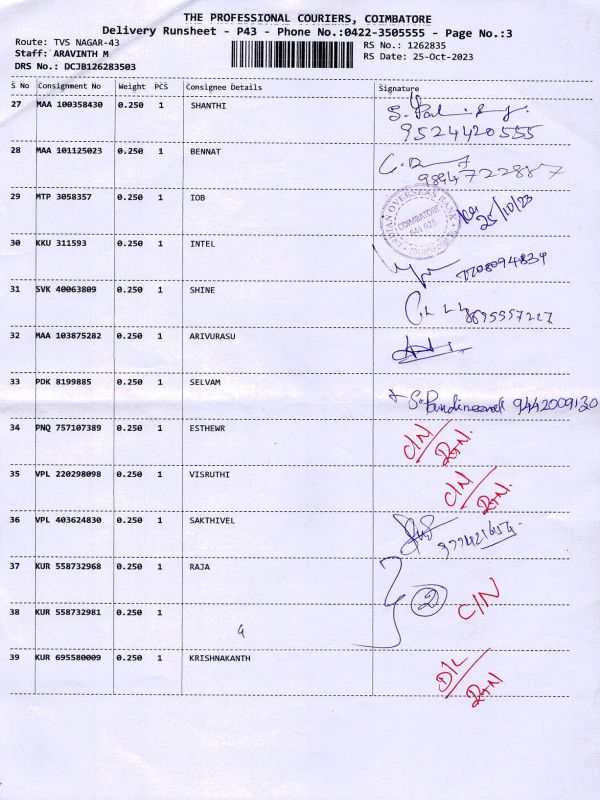 THE PROFESSIONAL COURIERS, COIMBATORE
Delivery Runsheet - P43 - Phone No.:0422-3505555 - Page No.:3
Route: TVS NAGAR-43
Staff: ARAVINTH M
DRS No.: DCJB126283503
RS No.: 1262835
RS Date: 25-Oct-2023
S No Consignment No Weight PCS Consignee Details Signature
27 MAA 100358430 0.250 1 SHANTHI
9524420555
28 MAA 101125023 0.250 1 BENNAT
29 MTP 3058357 0.250 1 IOB
INDIAN OVERSEAS BANK
COIMBATORE
641 025
25/10/23
30 KKU 311593 0.250 1 INTEL
31 SVK 40063809 0.250 1 SHINE
32 MAA 103875282 0.250 1 ARIVURASU
33 PDK 8199885 0.250 1 SELVAM
9442009130
34 PNQ 757107389 0.250 1 ESTHEWR
C/N
RTN.
35 VPL 220298098 0.250 1 VISRUTHI
C/N
RTN.
36 VPL 403624830 0.250 1 SAKTHIVEL
37 KUR 558732968 0.250 1 RAJA
2 C/N
38 KUR 558732981 0.250 1
39 KUR 695580009 0.250 1 KRISHNAKANTH
D/L
RTN